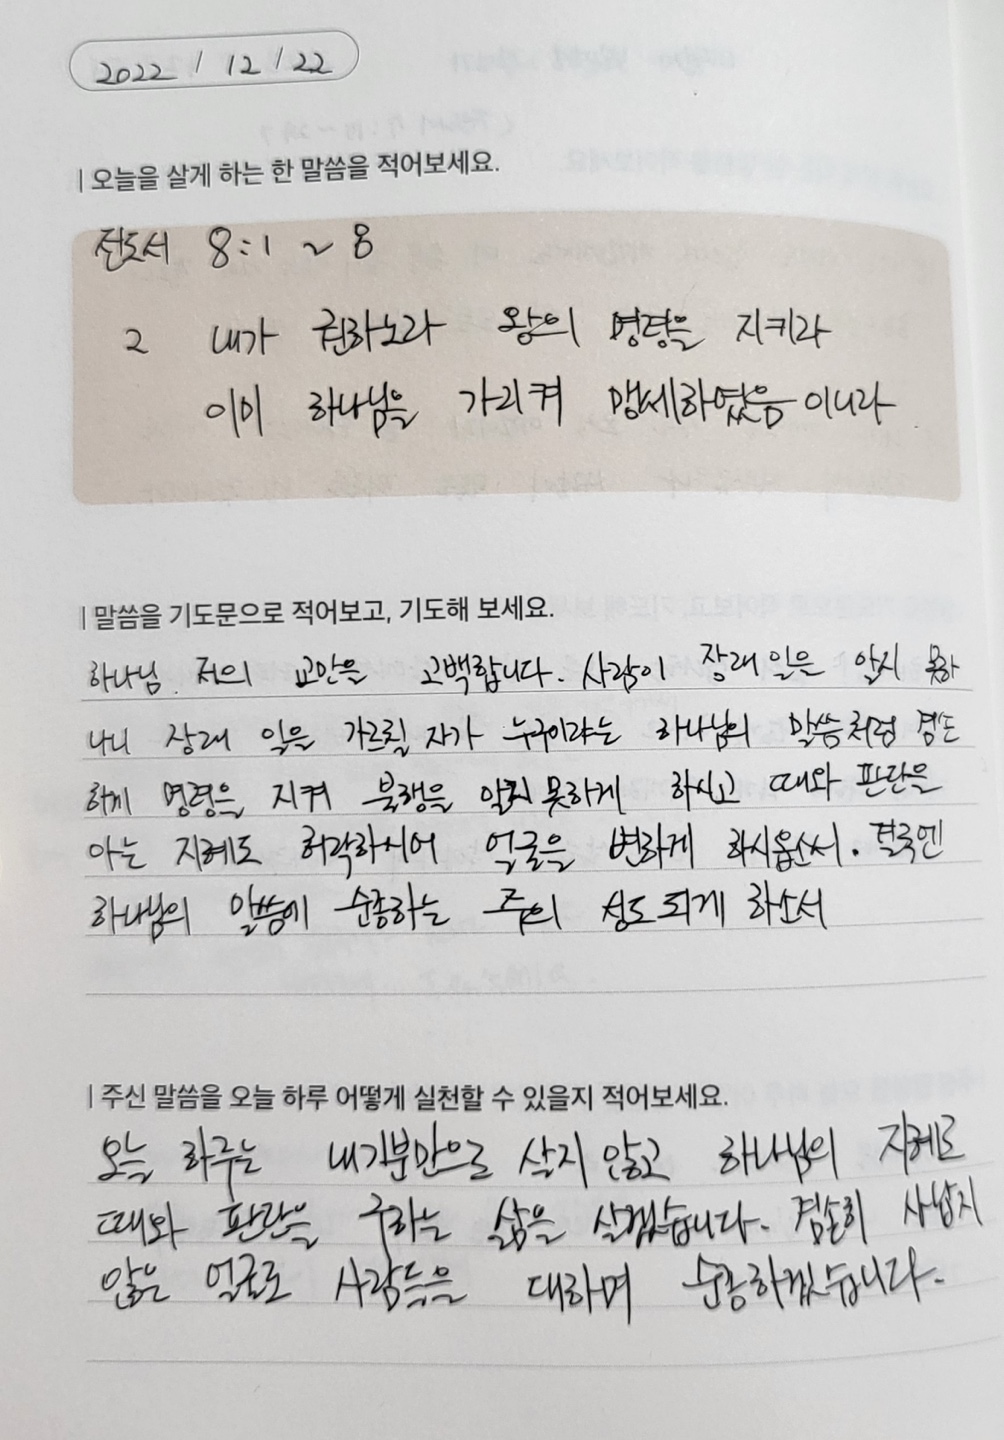 2022 / 12 / 22
| 오늘을 살게 하는 한 말씀을 적어보세요.
전도서 8:1 ~ 8
2 내가 권하노라 왕의 명령을 지키라
이미 하나님을 가리켜 맹세하였음이니라
| 말씀을 기도문으로 적어보고, 기도해 보세요.
하나님. 저의 교만을 고백합니다. 사람이 장래 일을 알지 못하
나니 장래 일을 가르칠 자가 누구이랴는 하나님의 말씀처럼 겸손
하게 명령을 지켜 불행을 알지 못하게 하시고 때와 판단을
아는 지혜도 허락하시어 얼굴을 변하게 하시옵소서. 결국엔
하나님의 말씀에 순종하는 주의 성도 되게 하소서
| 주신 말씀을 오늘 하루 어떻게 실천할 수 있을지 적어보세요.
오늘 하루는 내 기분만으로 살지 않고 하나님의 지혜로
때와 판단을 구하는 삶을 살겠습니다. 겸손히 사납지
않은 얼굴로 사람들을 대하며 순종하겠습니다.